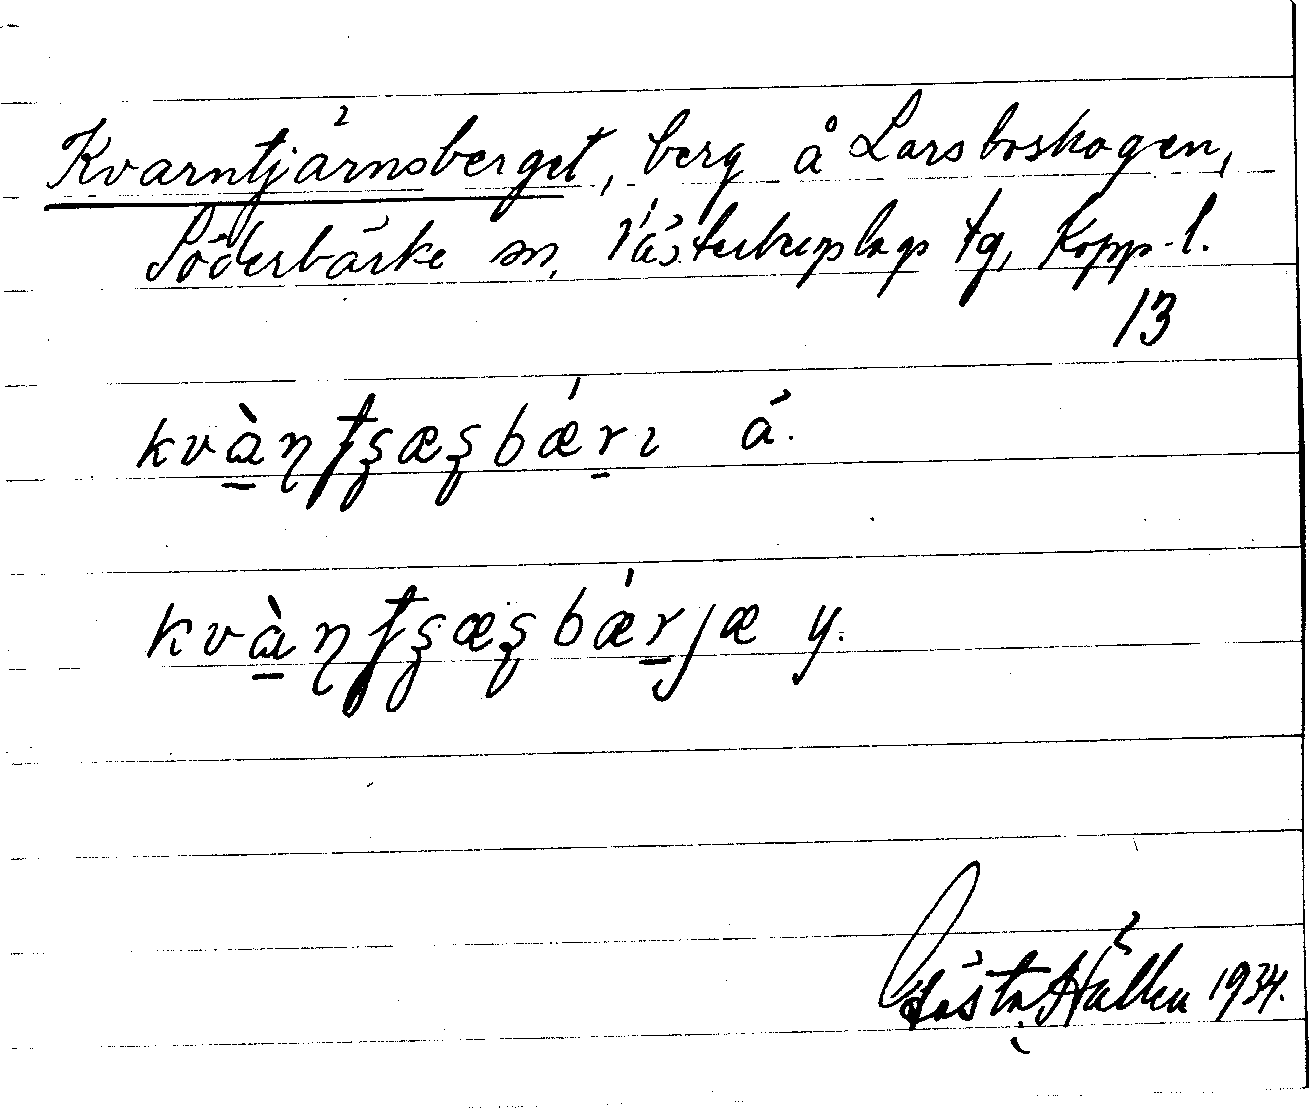 Kvarntjärnsberget, berg å Larsboskogen,
Söderbärke sn, Västerbergslags tg, Kopp. l.
13
kvàn̠ʈʂæʂbǽr̠ı á.
kvàn̠ʈʂæʂbǽr̠jæ y.
Gösta 1934.